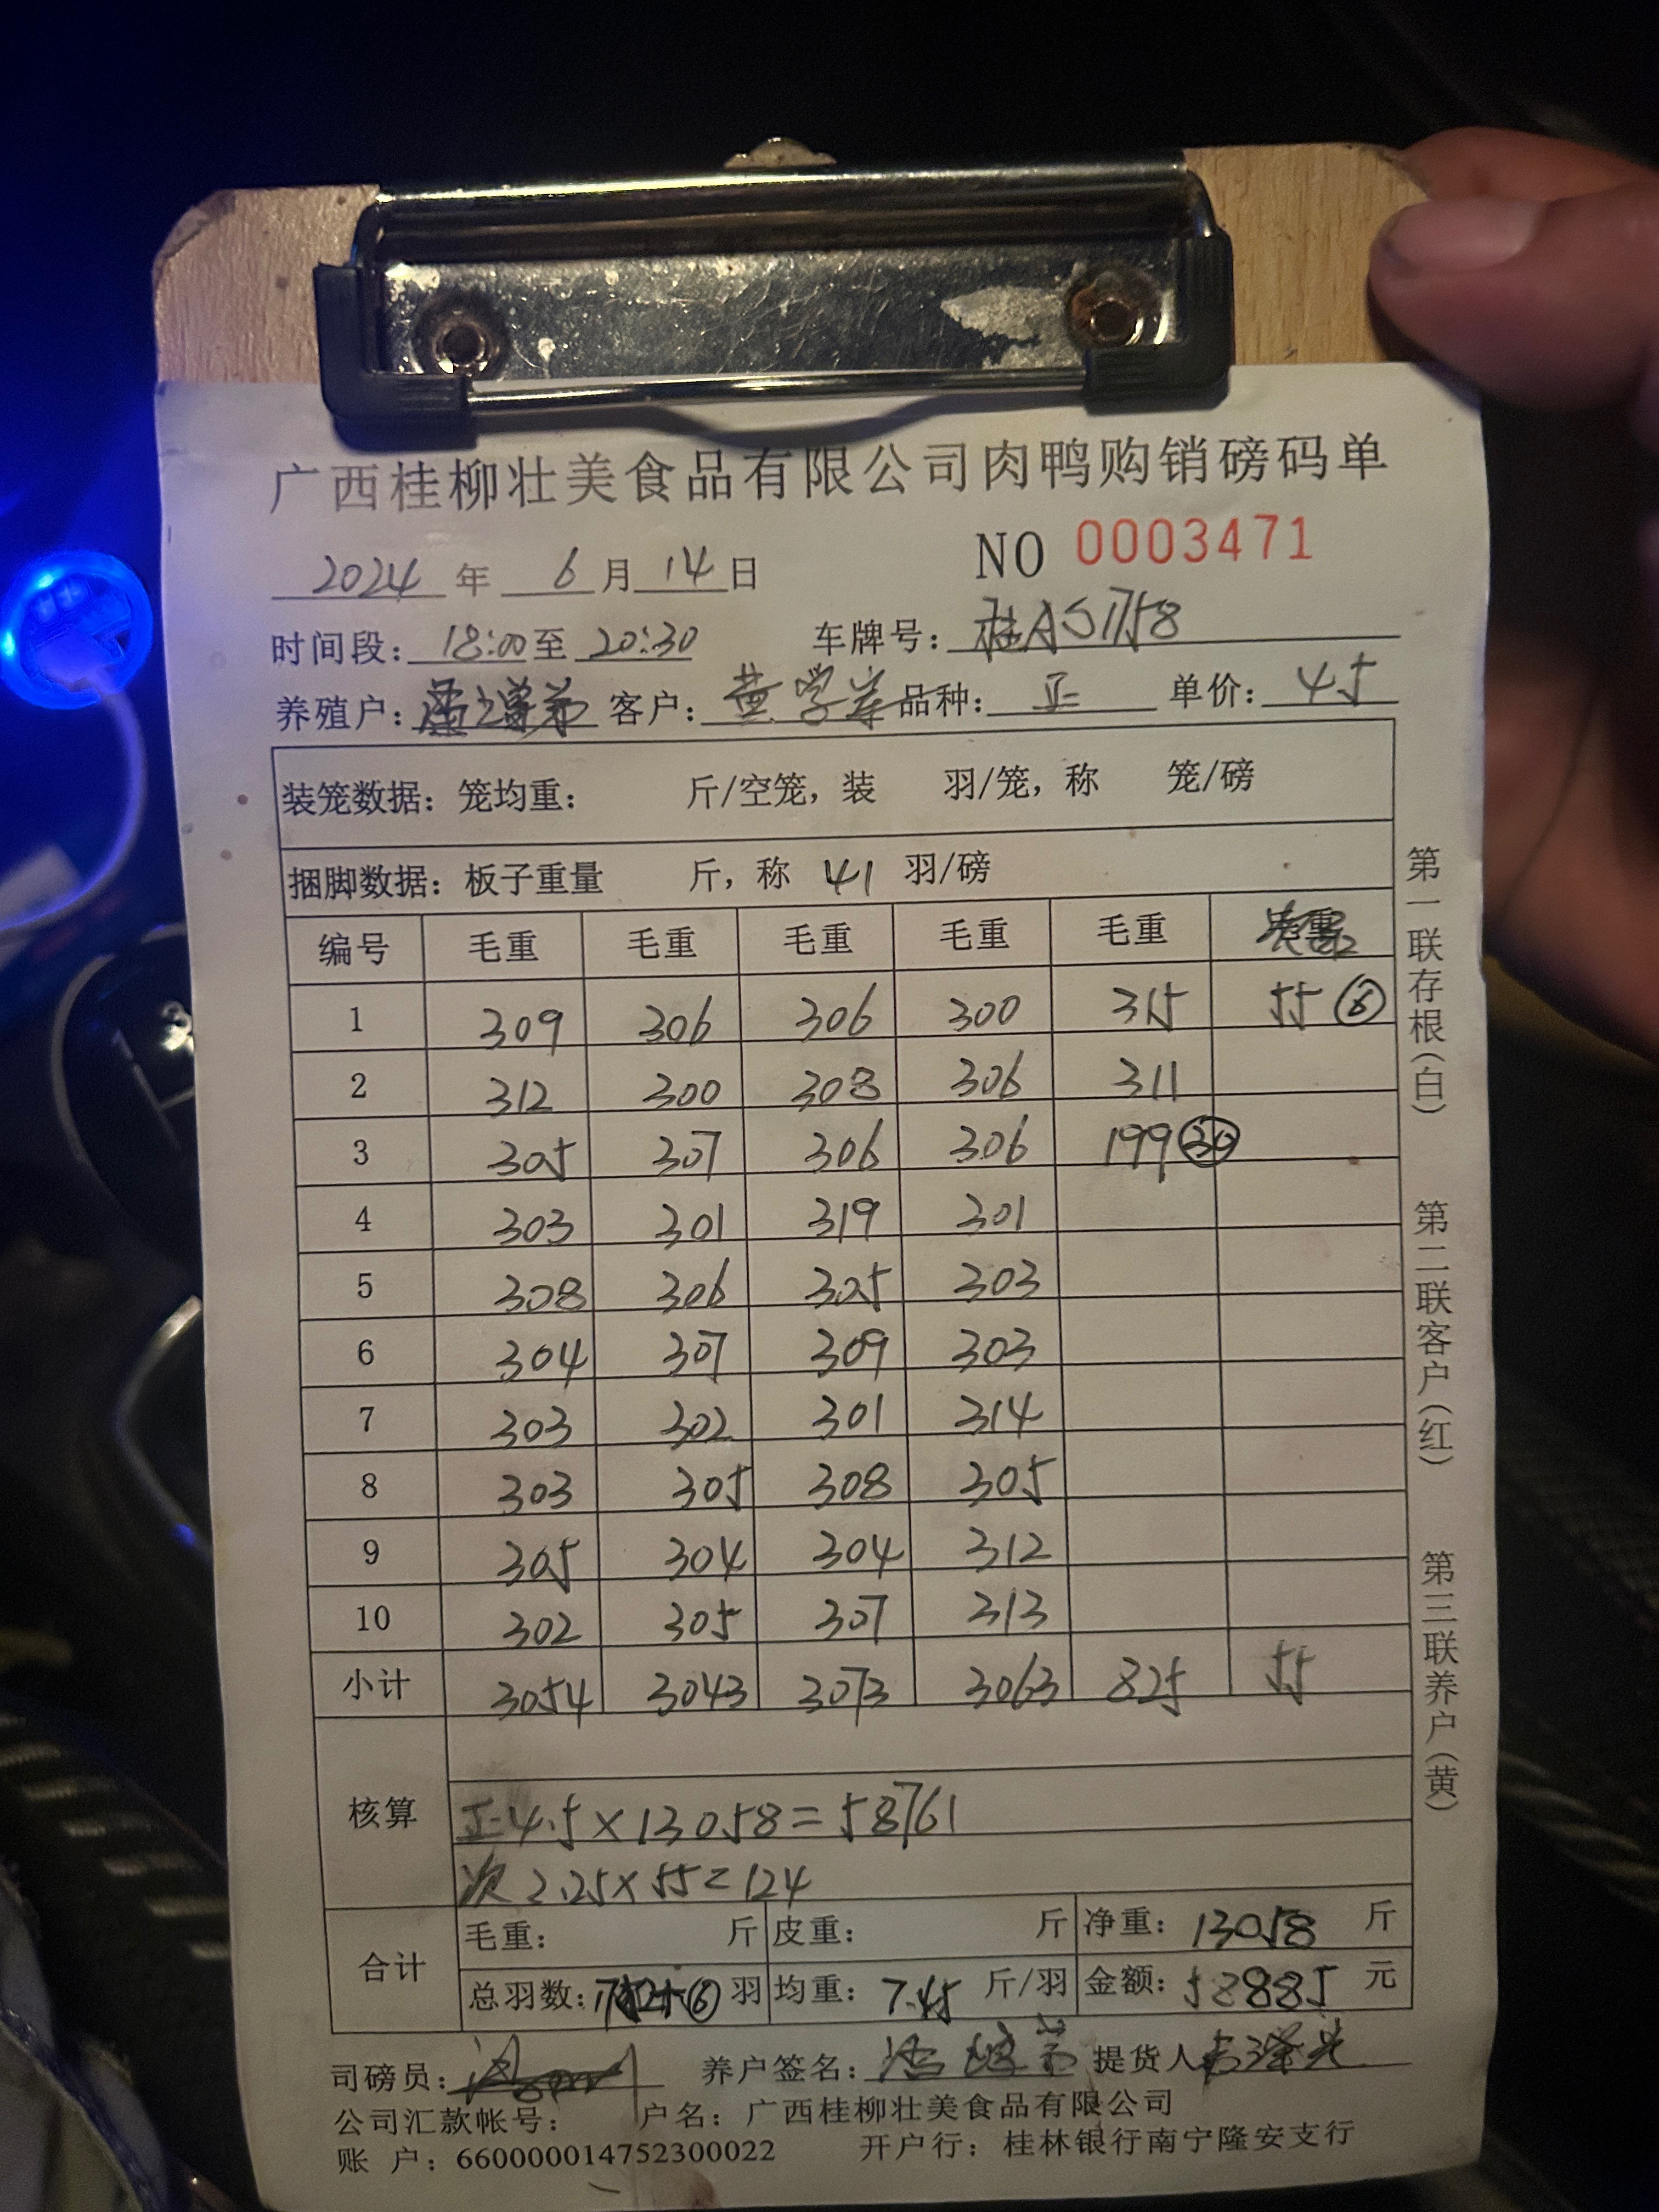 广西桂柳壮美食品有限公司肉鸭购销磅码单
NO 0003471
2024 年 6 月 14 日
时间段: 18:00 至 20:30 车牌号: 桂AS1758
养殖户: 客户: 黄学岸 品种: 正 单价: 4.5
装笼数据: 笼均重: 斤/空笼, 装 羽/笼, 称 笼/磅
捆脚数据: 板子重量 斤, 称 41 羽/磅
编号 毛重 毛重 毛重 毛重 毛重
1 309 306 306 300 315 55 ⑥
2 312 300 308 306 311
3 305 307 306 306 199 ㉚
4 303 301 319 301
5 308 306 305 303
6 304 307 309 303
7 303 302 301 314
8 303 305 308 305
9 305 304 304 312
10 302 305 307 313
小计 3054 3043 3073 3063 825 55
核算
正 4.5×13058=58761
次 2.25×55=124
合计 毛重: 斤 皮重: 斤 净重: 13058 斤
总羽数: 羽 均重: 7.45 斤/羽 金额: 58885 元
司磅员: 养户签名: 提货人
公司汇款帐号: 户名: 广西桂柳壮美食品有限公司
账 户: 660000014752300022 开户行: 桂林银行南宁隆安支行
第一联存根(白)
第二联客户(红)
第三联养户(黄)